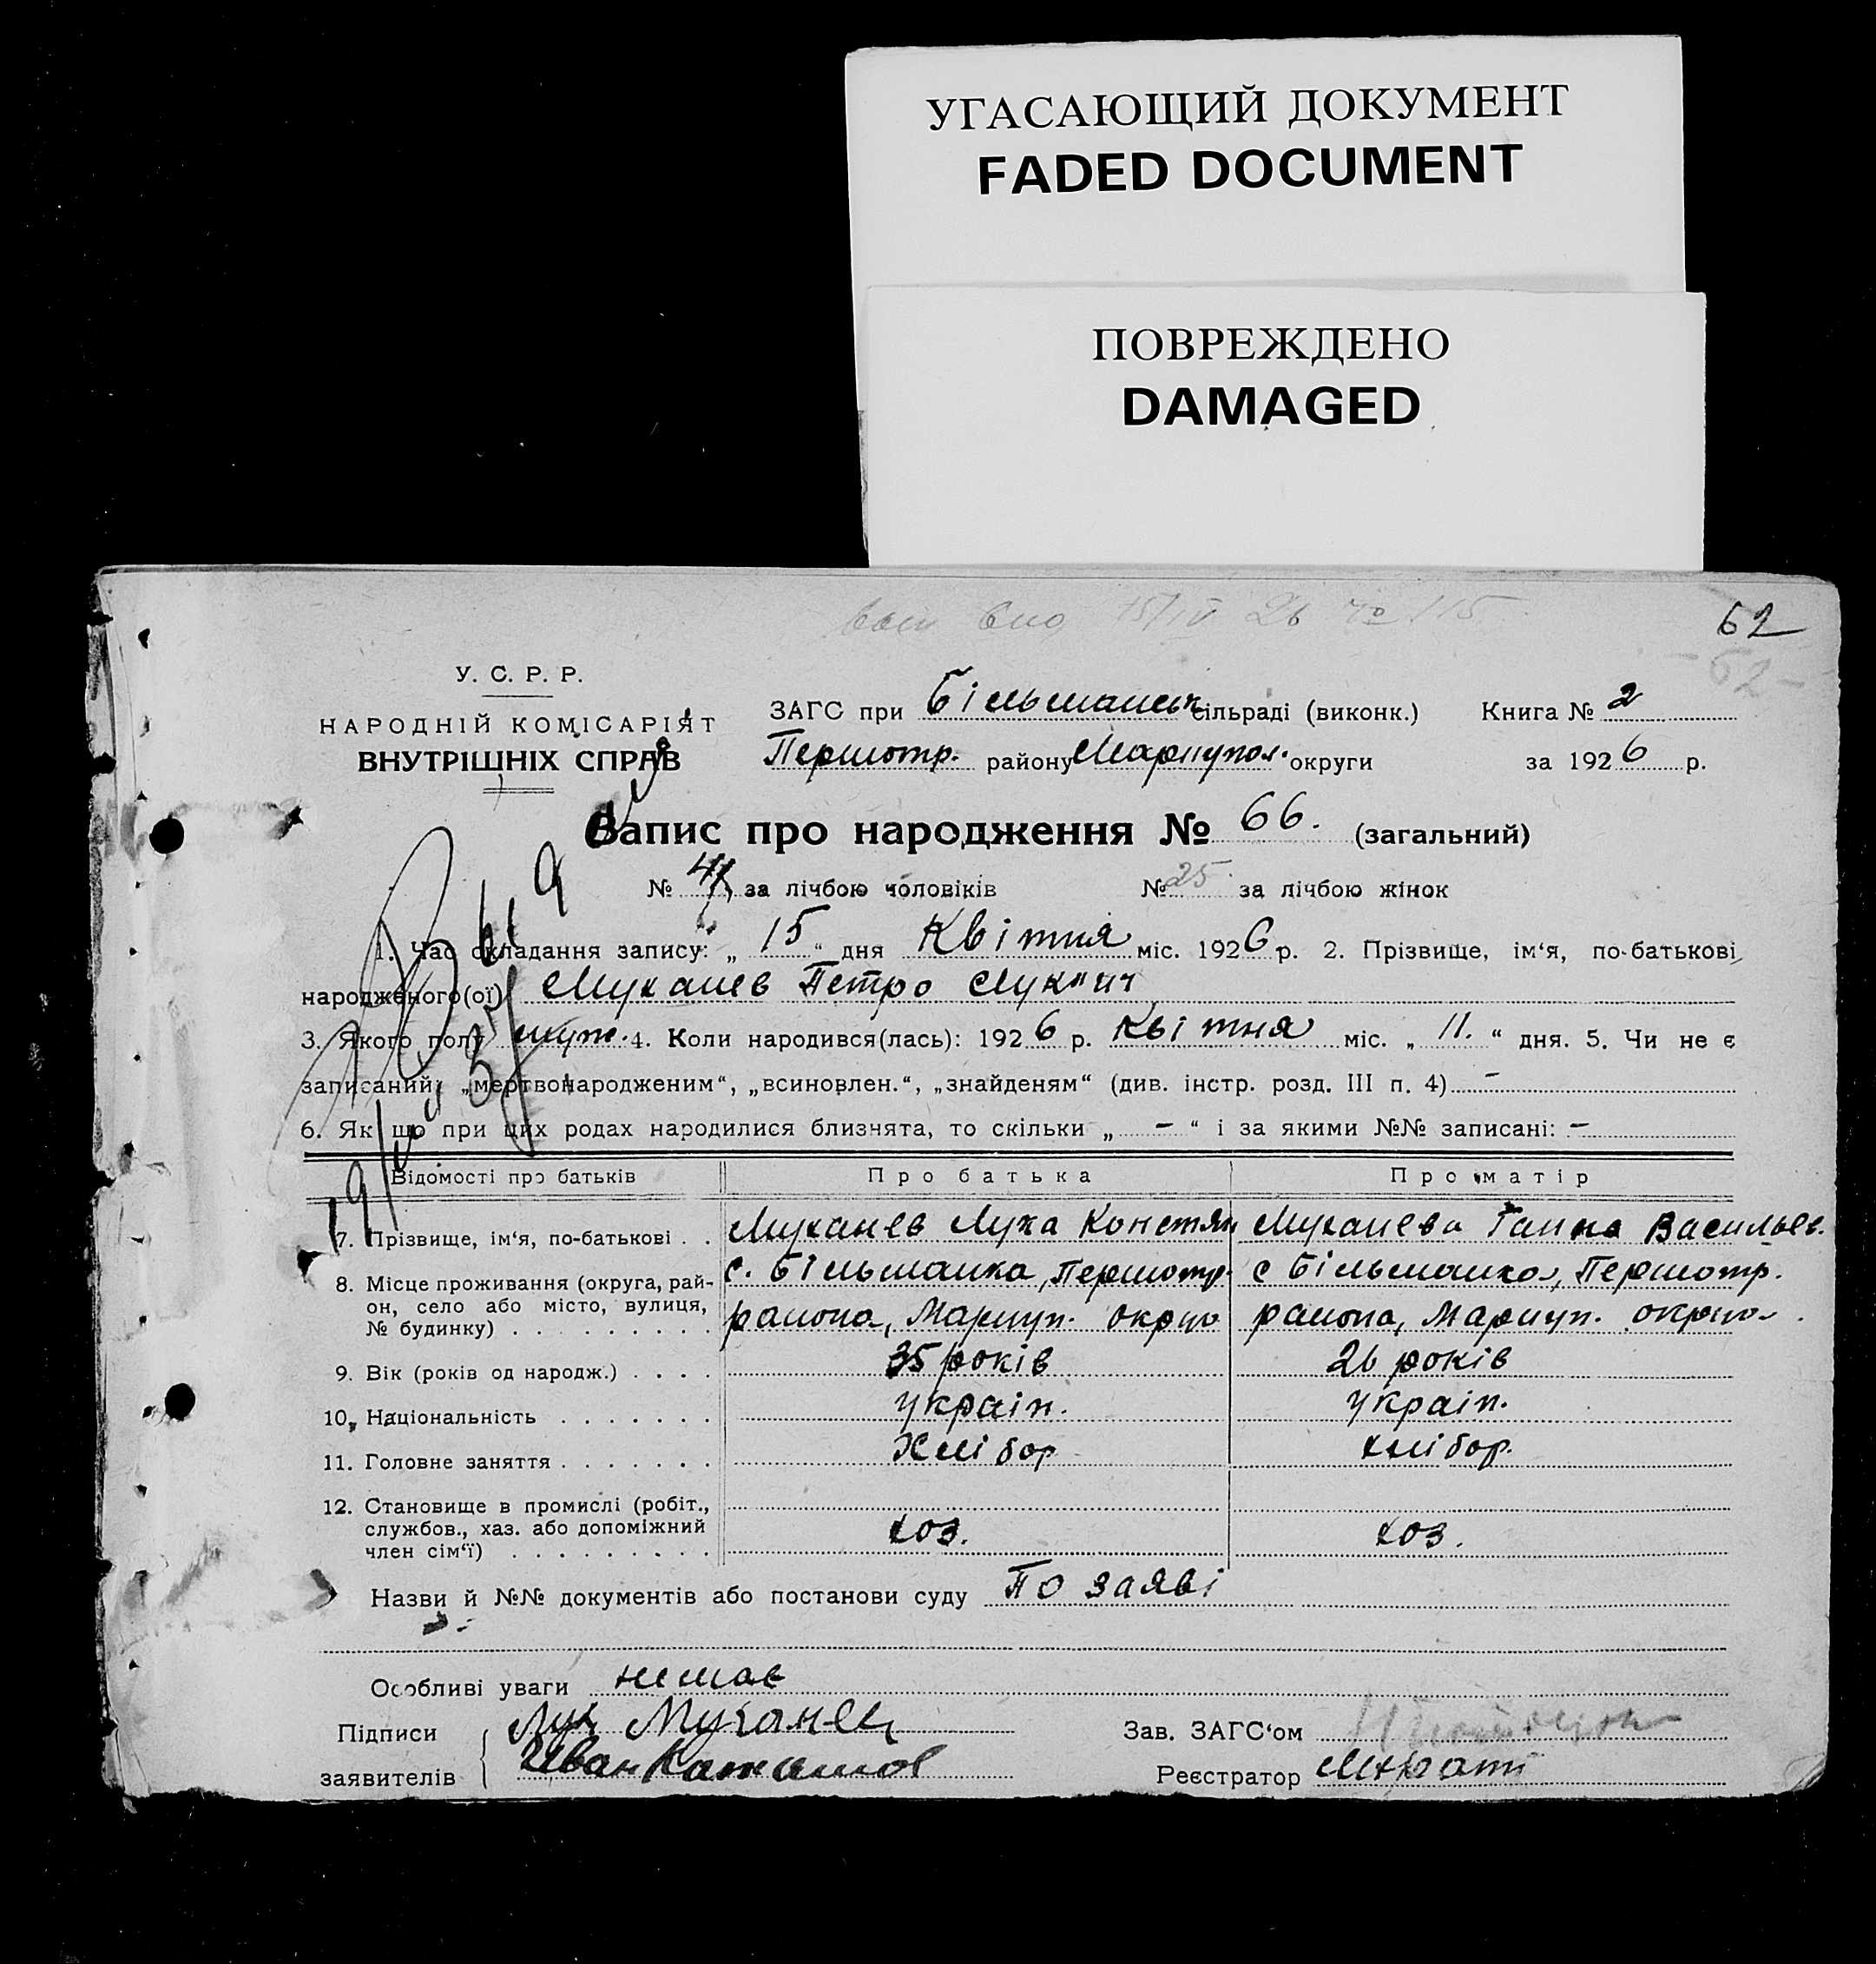 УГАСАЮЩИЙ ДОКУМЕНТ
FADED DOCUMENT
ПОВРЕЖДЕНО
DAMAGED
15/IV 26 № 115
62
62
У. С. Р. Р.
НАРОДНІЙ КОМІСАРІЯТ
ВНУТРІШНІХ СПРАВ
ЗАГС при Більманськ сільраді (виконк.) Книга № 2
Першотр. району Маріупол. округи за 1926 р.
Запис про народження № 66. (загальний)
№ 41 за лічбою чоловіків № 25 за лічбою жінок
1. Час складання запису: „ 15 “ дня Квітня міс. 1926 р. 2. Прізвище, ім‘я, по-батькові
народженого(ої) Муханев Петро Лукич
3. Якого полу муж. 4. Коли народився(лась): 1926 р. Квітня міс. „ 11. “ дня. 5. Чи не є
записаний: „мертвонародженим“, „всиновлен.“, „знайденям“ (див. інстр. розд. III п. 4) -
6. Як що при цих родах народилися близнята, то скільки „ - “ і за якими №№ записані: -
Відомості про батьків Про батька Про матір
7. Прізвище, ім‘я, по-батькові . . Муханев Лука Констян Муханева Ганна Васильев.
8. Місце проживання (округа, рай- с. Більманка, Першотр. с Більманка, Першотр.
он, село або місто, вулиця,
№ будинку) . . . . . . . . . района, Мариуп. округа района, Мариуп. округа
9. Вік (років од народж.) . . . . 35 років 26 років
10. Національність . . . . . . . україн. україн.
11. Головне заняття . . . . . . . Хлібор хлібор.
12. Становище в промислі (робіт.,
службов., хаз. або допоміжний
член сім‘ї) . . . . . . . . . хоз. хоз.
Назви й №№ документів або постанови суду По заяві
Особливі уваги немає
Підписи Лук Муханев Зав. ЗАГС‘ом
заявителів Иван Реєстратор